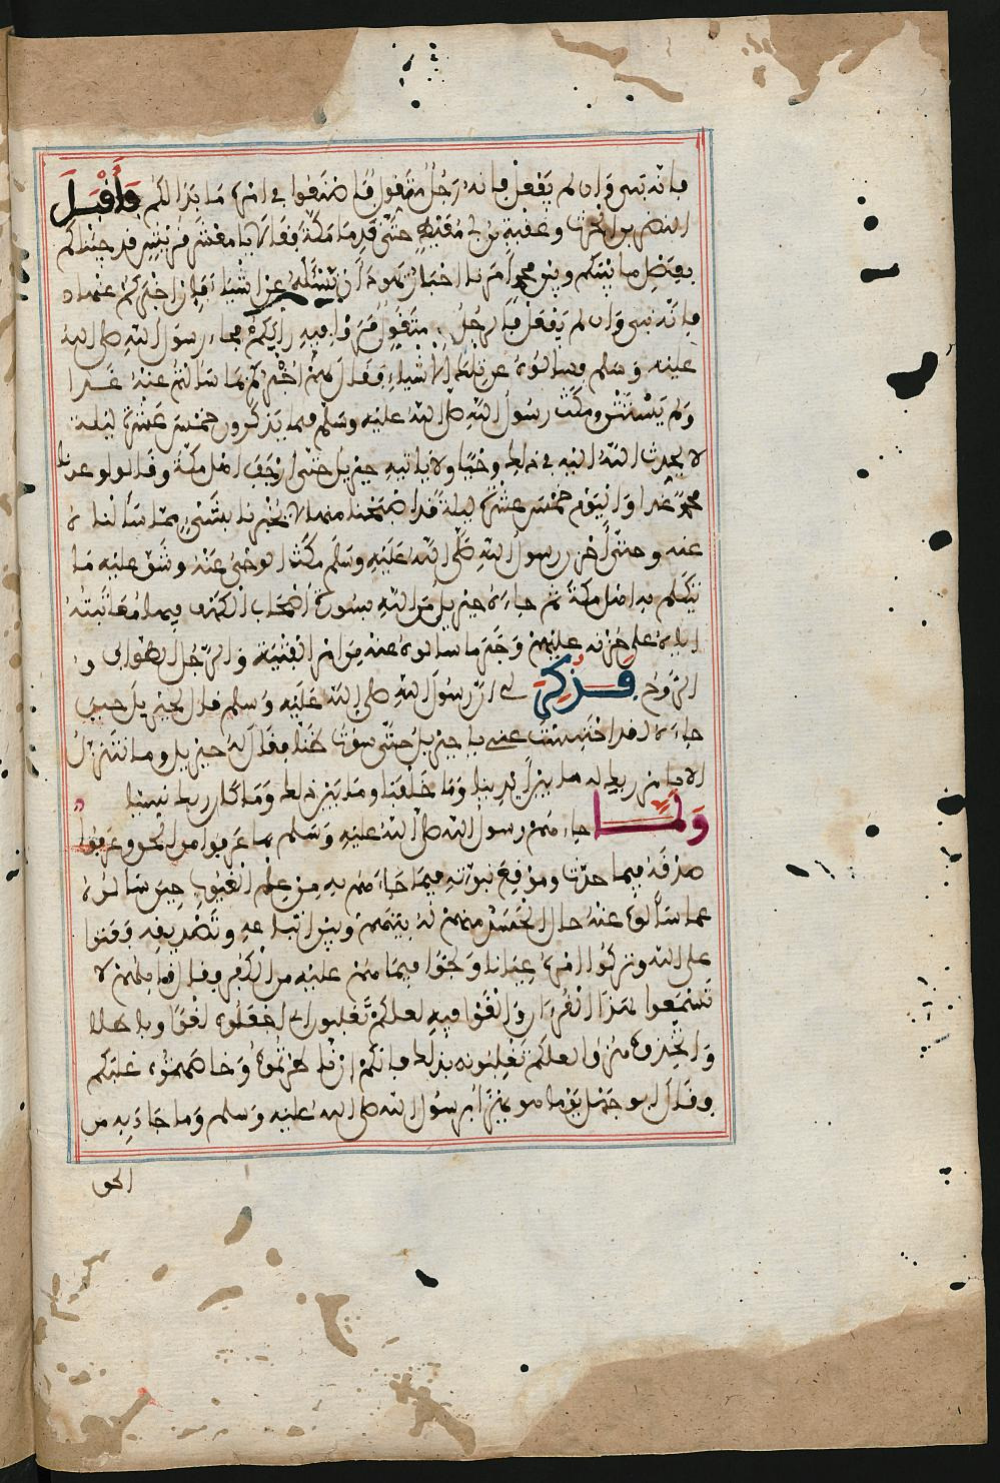 فانه نبي وان لم يفعل فانه رجل متقول فاصنعوا في امره ما بدا لكم وأقبل
النضر بن الحرث وعقبة بن ابي معيط حتى قدما مكة فقالا يا معشر قريش قد جيناكم
بفصل ما بينكم وبين محمد أمرنا احبار يهود أن نسئله عن اشياء فإن اخبركم عنها
فانه نبي وان لم يفعل فالرجل متقول فروا فيه رأيكم فجاءوا رسول الله صلى الله
عليه وسلم فسالوه عن تلك الاشياء فقال لهم اخبركم بما سالتم عنه غدا
ولم يستثن ومكث رسول الله صلى الله عليه وسلم فيما يذكرون خمس عشرة ليلة
لا يحدث الله اليه في ذلك وحيا ولا ياتيه جبريل حتى ارجف اهل مكة وقالوا وعدنا
محمد غدا واليوم خمس عشرة ليلة قد اصبحنا منها لا يخبرنا بشيء مما سألناه
عنه وحتى أحزن رسول الله صلى الله عليه وسلم مكث الوحي عنه وشق عليه ما
يتكلم به اهل مكة ثم جاءه جبريل من الله بسورة أصحاب الكهف فيها معاتبته
اياه على حزنه عليهم وخبر ما سالوه عنه من امر الفتية والرجل الطواف و
الروح فذكر لي ان رسول الله صلى الله عليه وسلم قال لجبريل حين
جاءه لقد احتبست عني يا جبريل حتى سوت ظنا فقال له جبريل وما نتنزل
الا بامر ربك له ما بين أيدينا وما خلفنا وما بين ذلك وما كان ربك نسيا
ولما جاءهم رسول الله صلى الله عليه وسلم بما عرفوا من الحق وعرفوا
صدقه فيما حدث وموقع نبوته فيما جاءهم به من علم الغيوب حين سالوه
عما سألوه عنه حال الحسد منهم له بينهم وبين اتباعه وتصديقه فعتوا
على الله وتركوا امره عيانا ولجوا فيما هم عليه من الكفر وقال قايلهم لا
تسمعوا لهذا القرءان والغوا فيه لعلكم تغلبون اي اجعلوه لغوا وباطلا
واتخذوه هزوا لعلكم تغلبونه بذلك فانكم ان ناظرتموه وخاصمتموه غلبكم
وقال ابو جهل يوما هو يهزأ برسول الله صلى الله عليه وسلم وما جاء به من
الحق